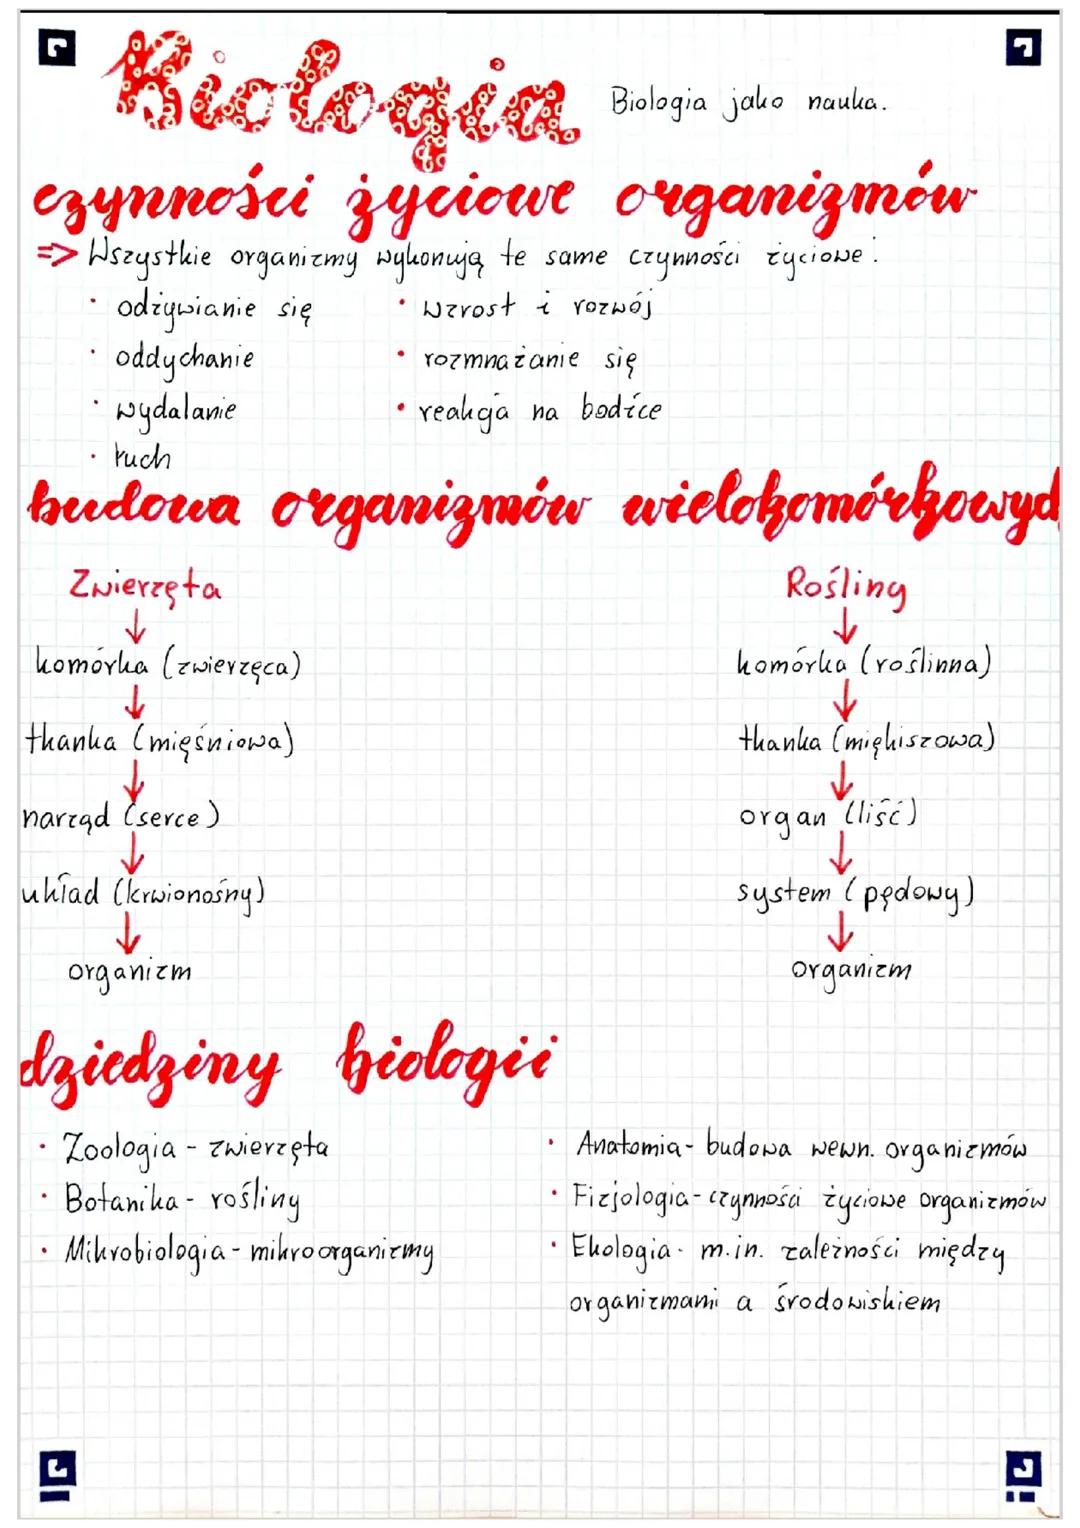 Biologia
Biologia jako nauka.
czynności życiowe organizmów
=> Wszystkie organizmy wykonują te same czynności życiowe:
• odżywianie się
• oddychanie
• wydalanie
• ruch
• wzrost i rozwój
• rozmnażanie się
• reakcja na bodźce
budowa organizmów wielokomórkowych
Zwierzęta
↓
komórka (zwierzęca)
↓
tkanka (mięśniowa)
↓
narząd (serce)
↓
układ (krwionośny)
↓
organizm
Rośliny
↓
komórka (roślinna)
↓
tkanka (miękiszowa)
↓
organ (liść)
↓
system (pędowy)
↓
organizm
dziedziny biologii
• Zoologia - zwierzęta
• Botanika - rośliny
• Mikrobiologia - mikroorganizmy
• Anatomia - budowa wewn. organizmów
• Fizjologia - czynności życiowe organizmów
• Ekologia - m.in. zależności między
organizmami a środowiskiem